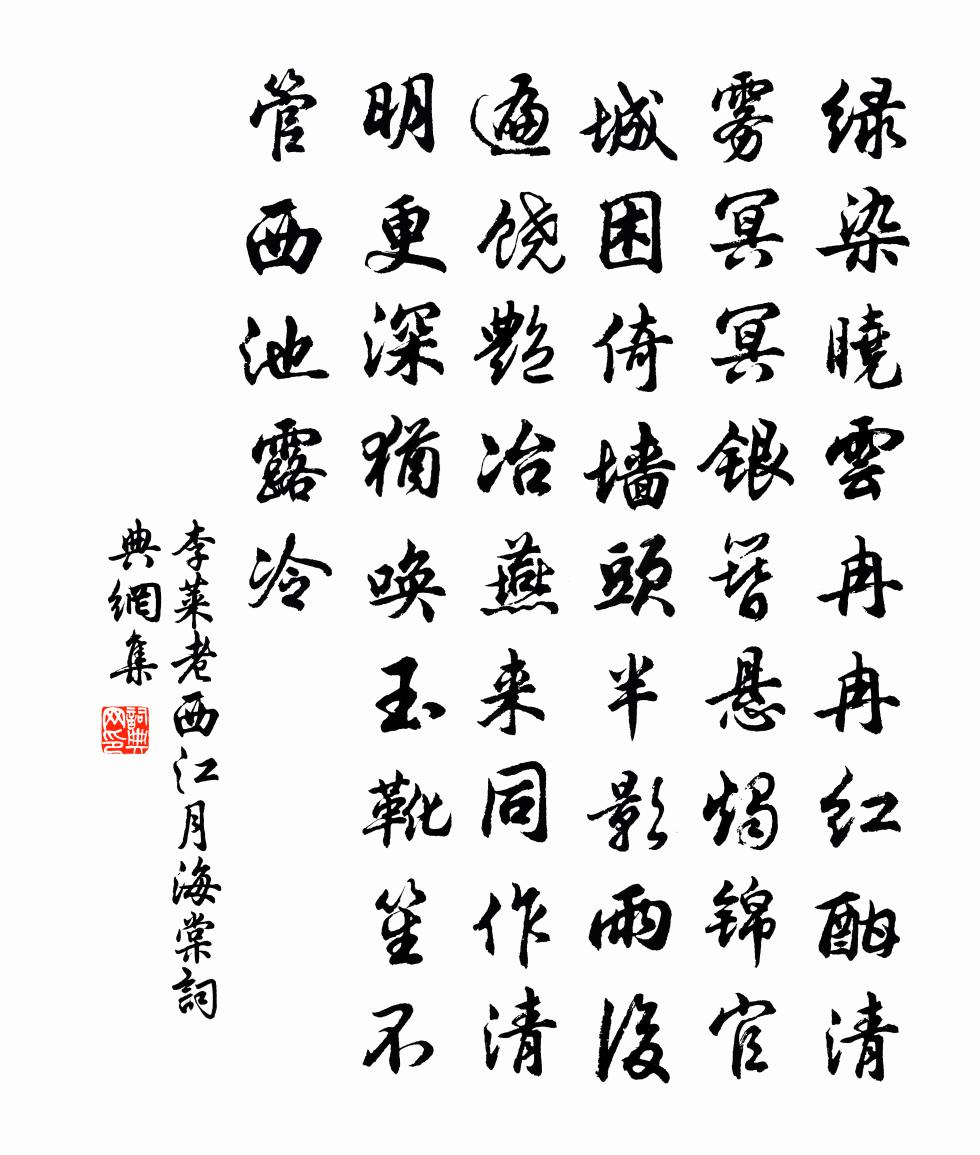 绿染曉雲冉冉红酣清
雾冥冥银簪悬烛锦官
城困倚墙頭半影雨後
遍饶艷冶燕来同作清
明更深猶唤玉靴笙不
管西池露冷
李莱老西江月海棠詞
典網集
詞典网印